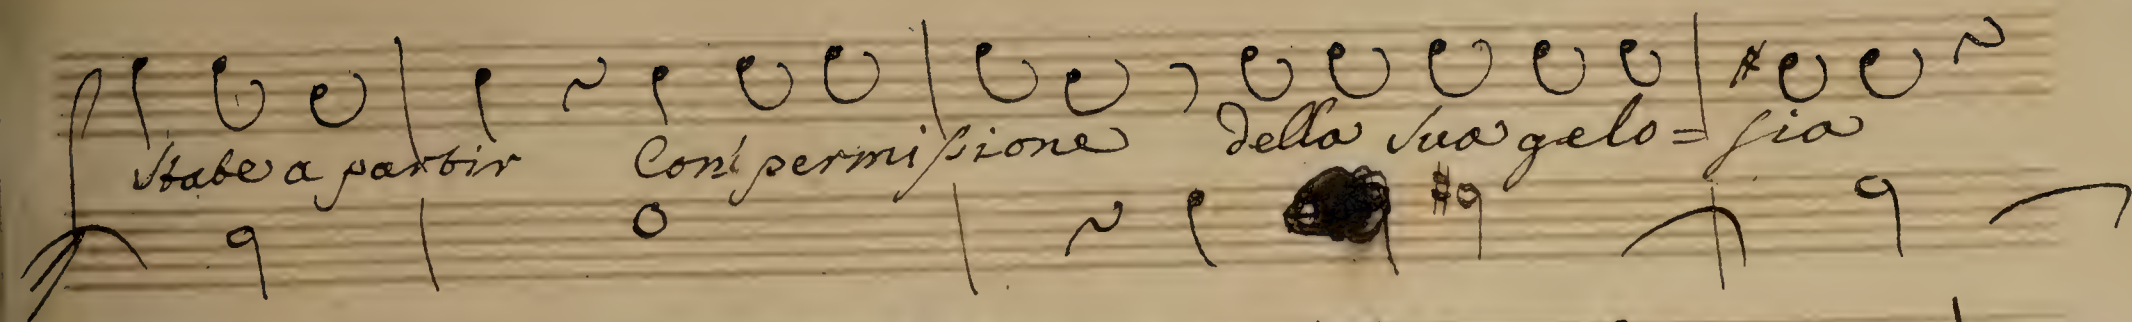 state a partir Con permissione della sua gelo=sia